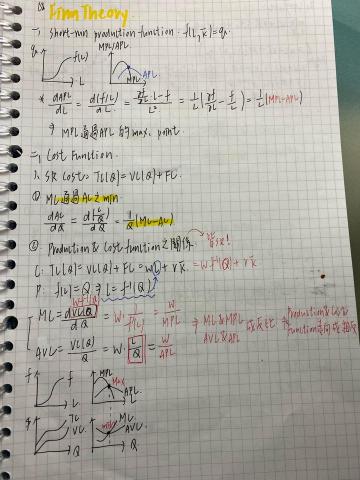 Firm Theory
一、Short-run production function: f(L, k̄) = q.
q f(L) L
MPL/APL MPL APL L
* dAPL/dL = d(f/L)/dL = (∂f/∂L · L - f)/L² = 1/L(∂f/∂L - f/L) = 1/L(MPL-APL)
MPL通過APL的max. point.
二、Cost Function
1. SR Cost: TC(Q) = VC(Q) + FC.
① MC通過AC之min
dAC/dQ = d(C/Q)/dQ = 1/Q(MC-AC)
② Production & Cost function之關係 皆SR!
C: TC(Q) = VC(Q) + FC = wL + rk̄ = w f⁻¹(Q) + rk̄
P: f(L) = Q ⇒ L = f⁻¹(Q)
w f⁻¹(Q)
MC = dVC(Q)/dQ = w · 1/f'(L) = w/MPL
⇒ MC & MPL AVC & APL 成反比
Production & Cost Function
AVC = VC(Q)/Q = w · L/Q = w/APL
f f L
MPL Max APL L
q TC VC Q
MC min AVC Q